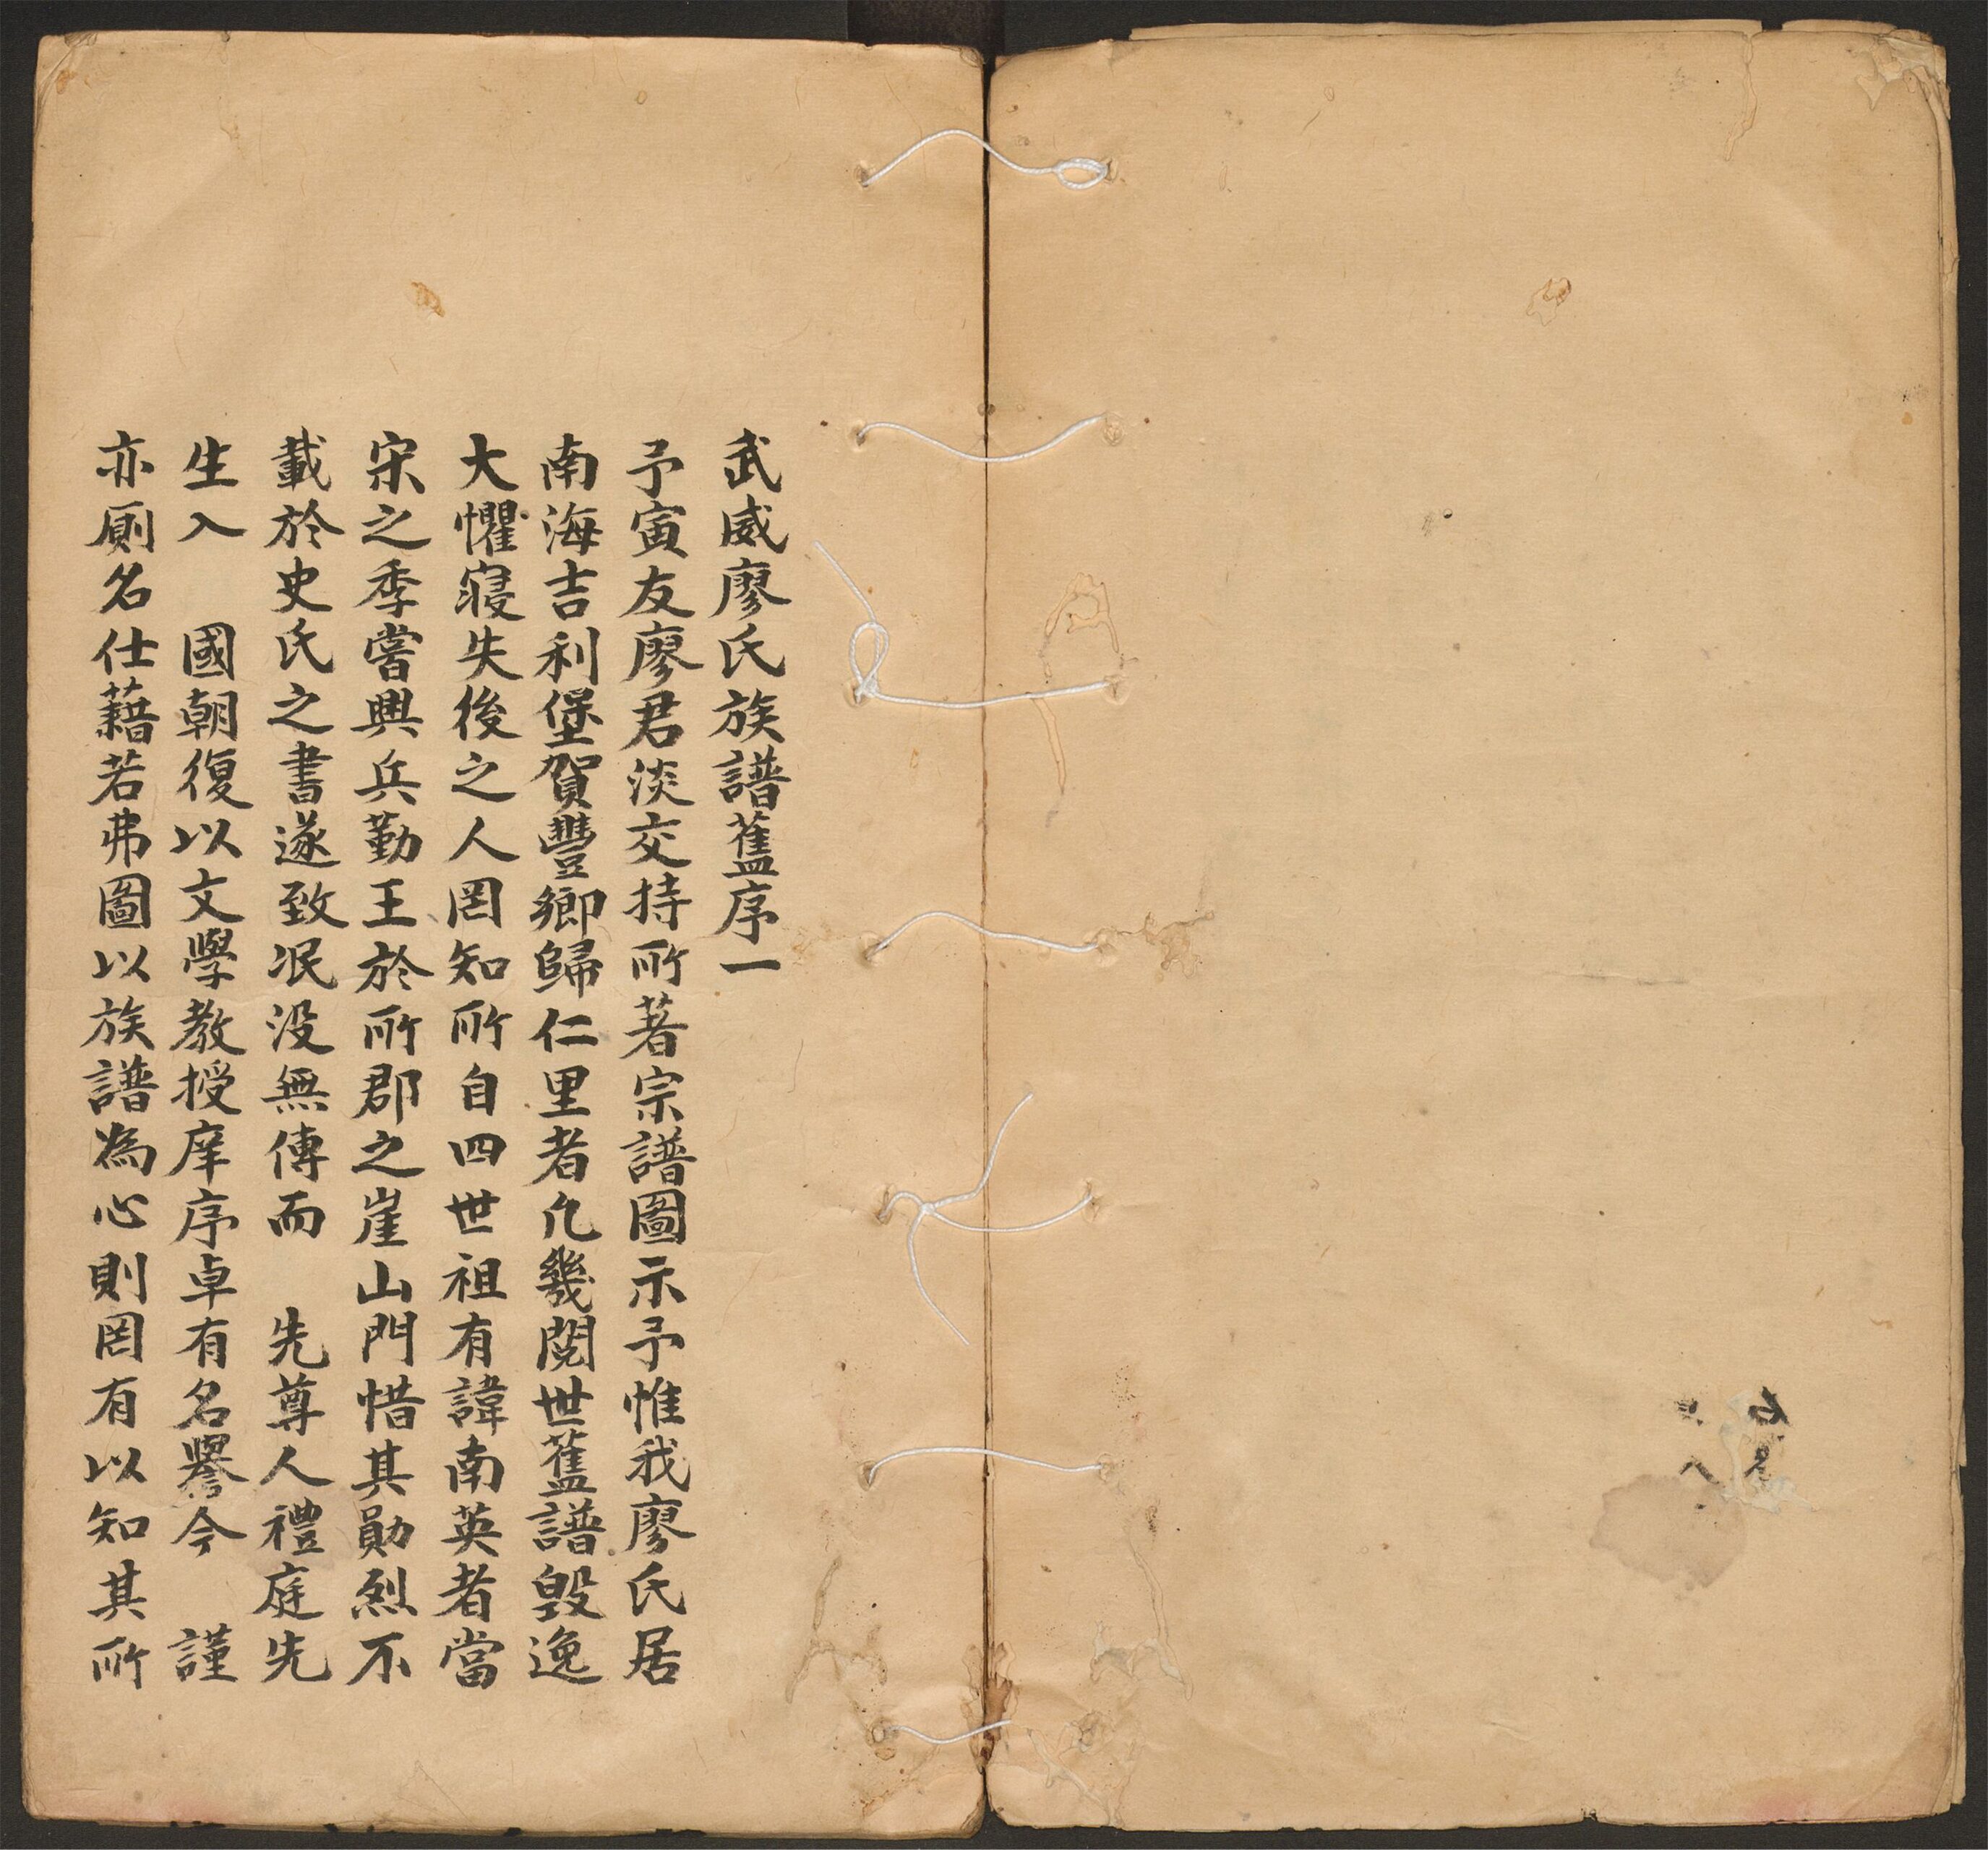 武威廖氏族譜舊序一
予寅友廖君淡交持所著宗譜圖示予惟我廖氏居
南海吉利堡賀豐鄉歸仁里者凢幾閱世舊譜毀逸
大懼寖失後之人罔知所自四世祖有諱南英者當
宋之季嘗興兵勤王於所郡之崖山門惜其勛烈不
載於史氏之書遂致泯没無傳而　先尊人禮庭先
生入　國朝復以文學教授庠序卓有名譽今　謹
亦厠名仕藉若弗圖以族譜為心則罔有以知其所